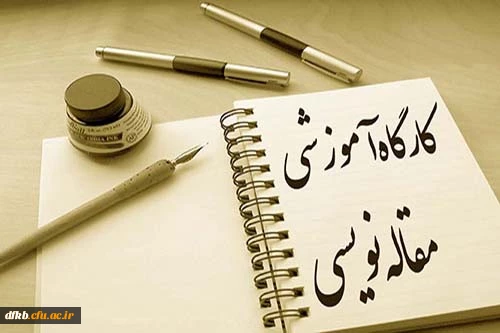 کارگاه آموزشی
مقاله نویسی
dfkb.cfu.ac.ir